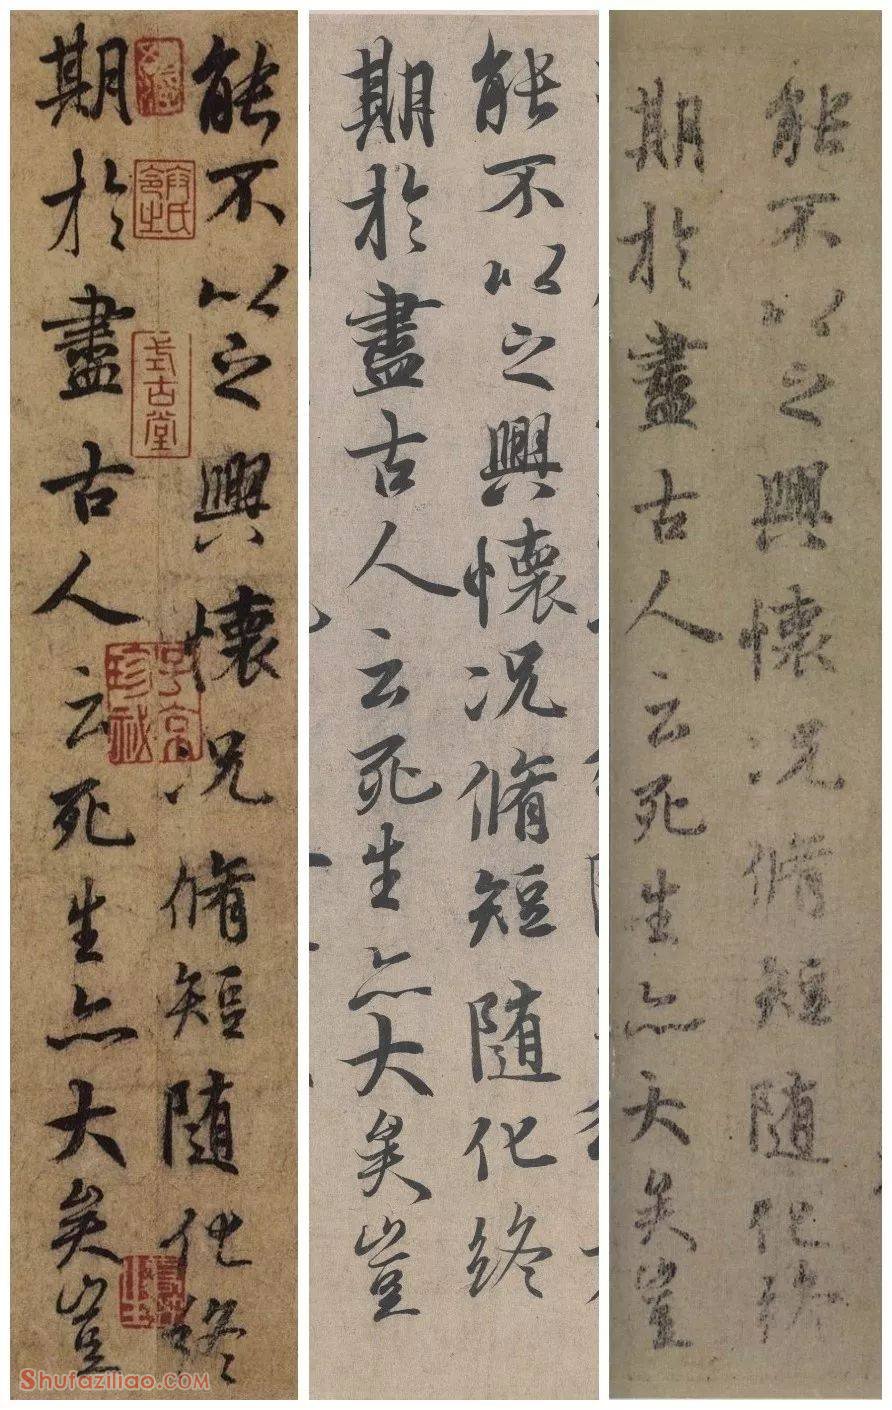 能不以之興懷况脩短随化終
期於盡古人云死生亦大矣豈
能不以之興懷况脩短随化終
期於盡古人云死生亦大矣豈
能不以之興懷况脩短随化終
期於盡古人云死生亦大矣豈
式古堂
子京
珍祕
Shufaziliao.COM